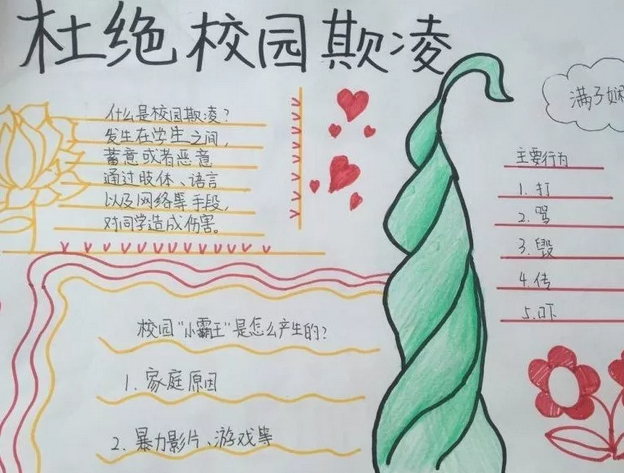 杜绝校园欺凌
什么是校园欺凌?
发生在学生之间,
蓄意或者恶意
通过肢体、语言
以及网络等手段,
对同学造成伤害。
满子娴
主要行为
1. 打
2. 骂
3. 毁
4. 传
5. 吓
校园“小霸王”是怎么产生的?
1. 家庭原因
2. 暴力影片、游戏等